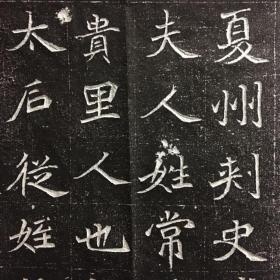 夏州刾史
夫人姓常
貴里人也
太后從姪